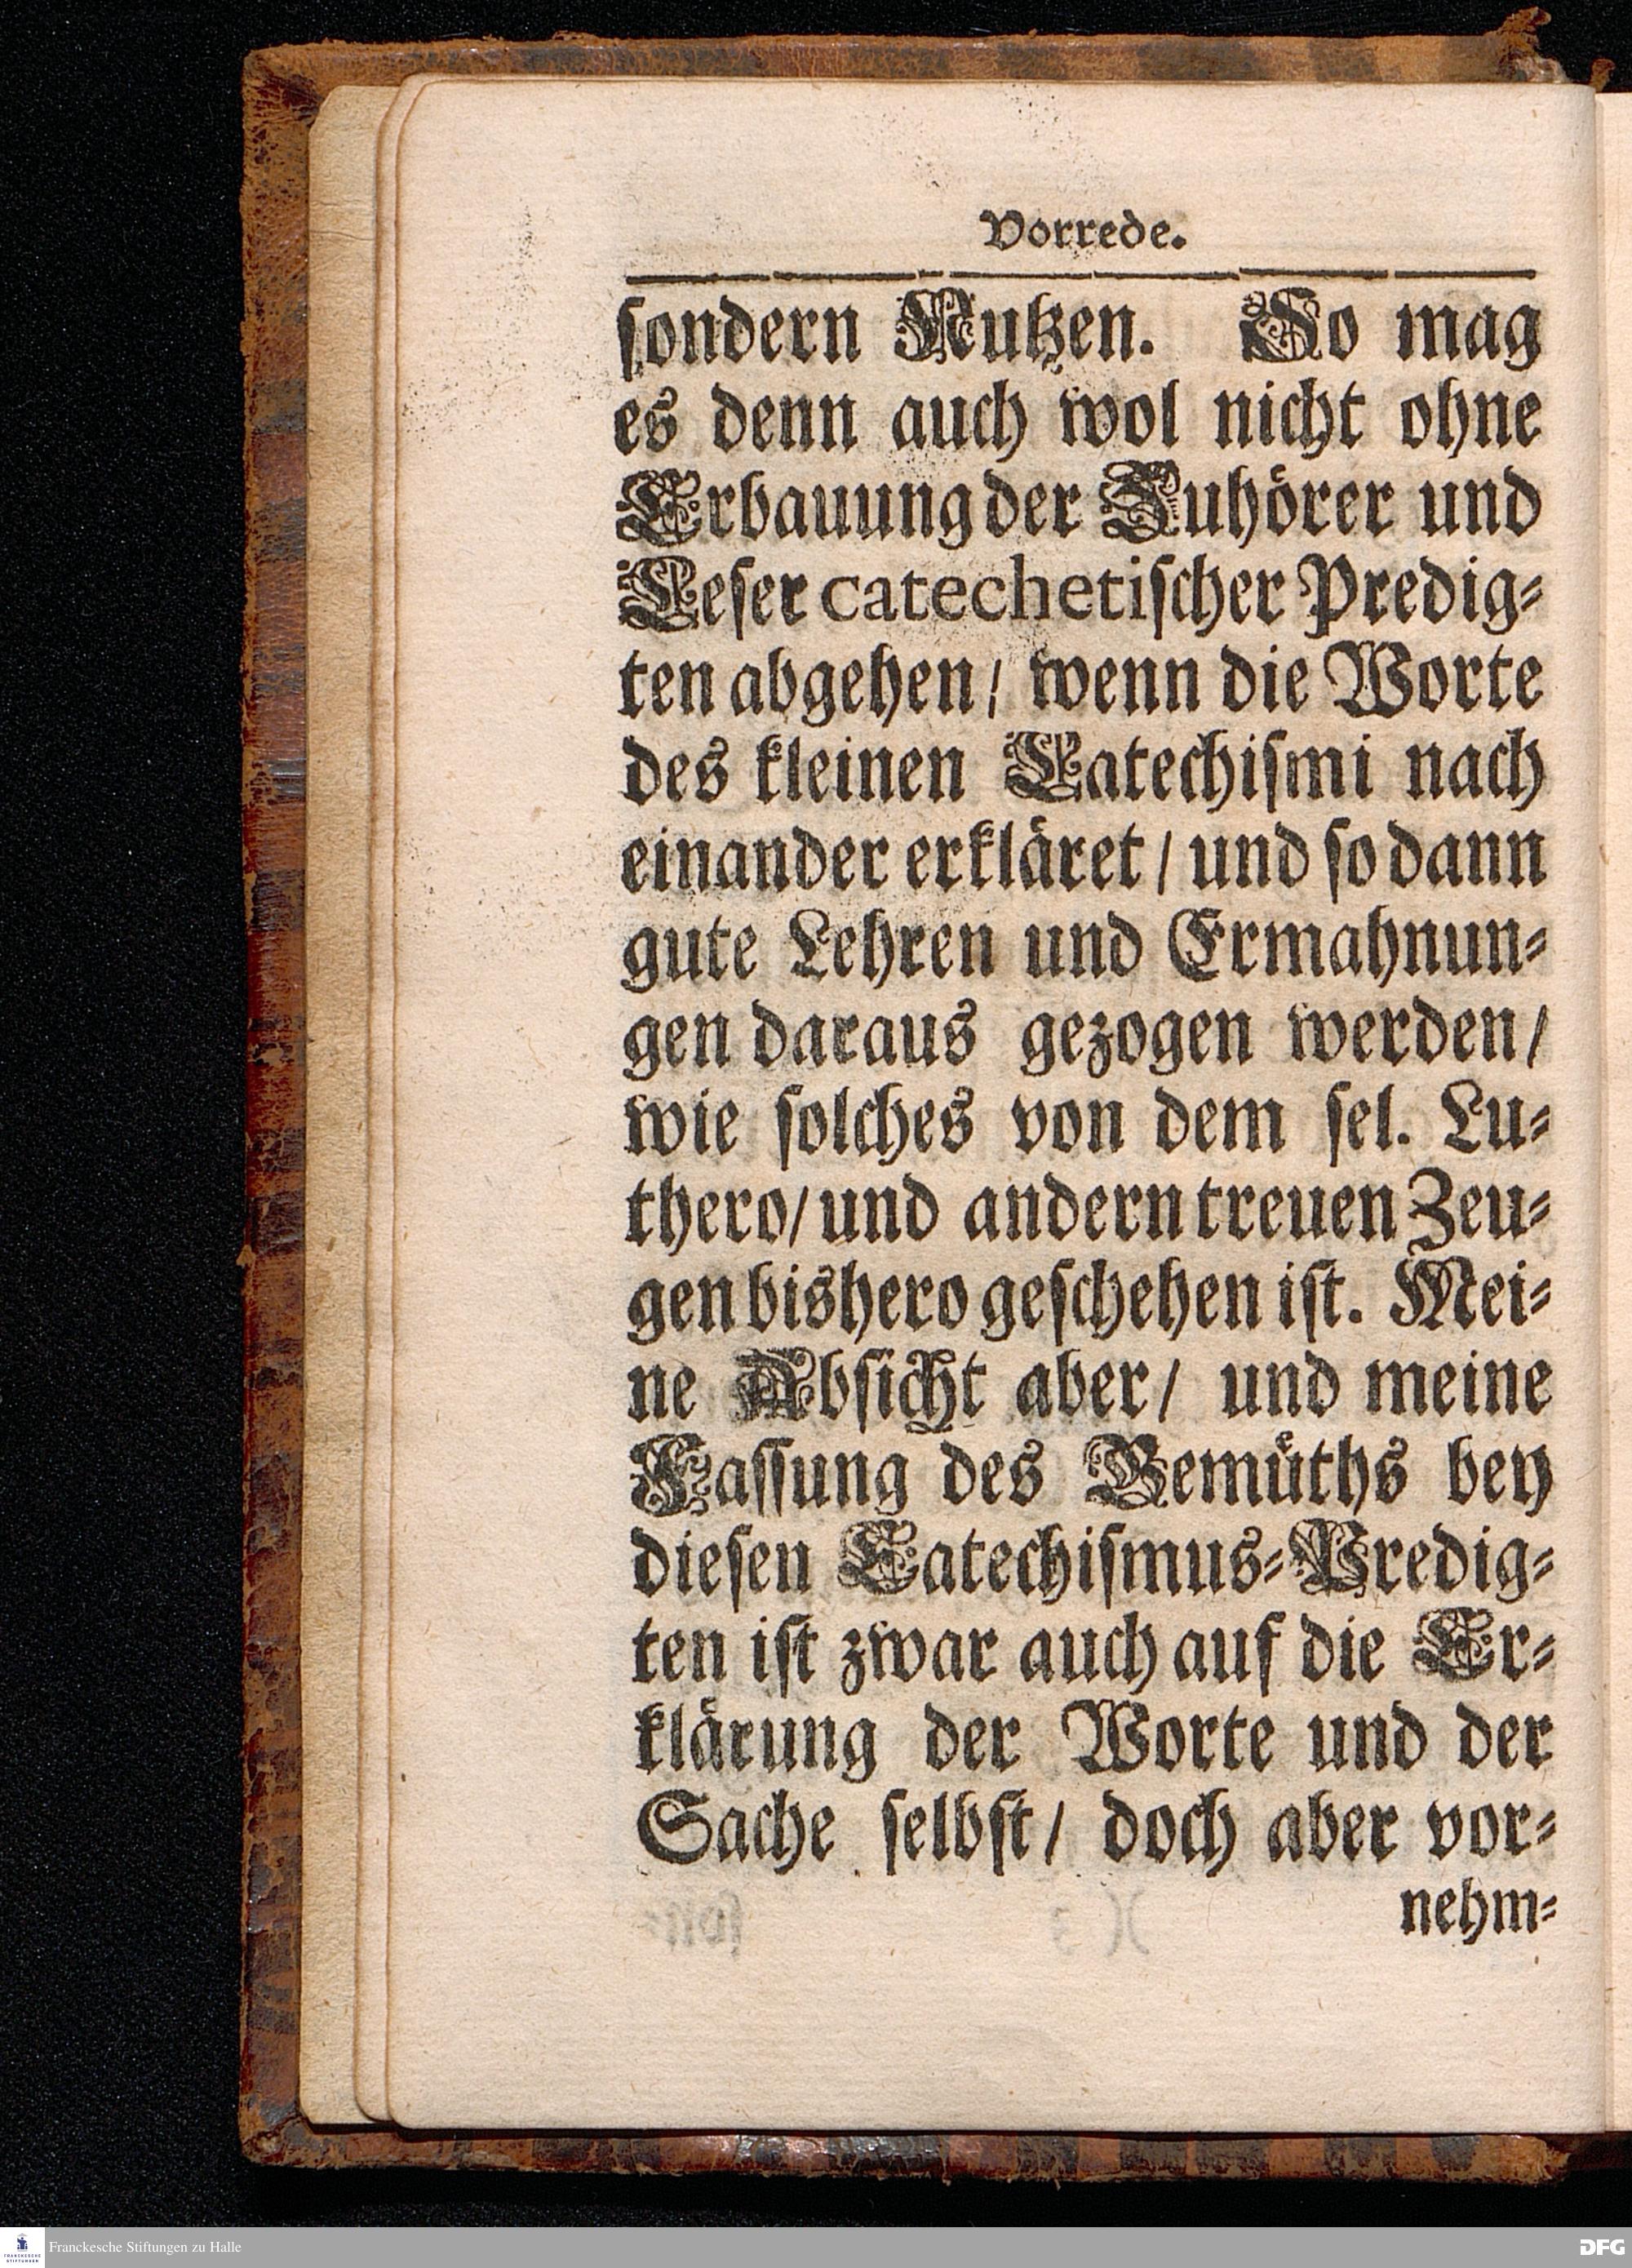 Vorrede.
ſondern Nutzen. So mag
es denn auch wol nicht ohne
Erbauung der Zuhörer und
Leſer catechetiſcher Predig⸗
ten abgehen/ wenn die Worte
des kleinen Catechiſmi nach
einander erkläret/ und ſo dann
gute Lehren und Ermahnun⸗
gen daraus gezogen werden/
wie ſolches von dem ſel. Lu⸗
thero/ und andern treuen Zeu⸗
gen bishero geſchehen iſt. Mei⸗
ne Abſicht aber/ und meine
Faſſung des Gemüths bey
dieſen Catechiſmus⸗Predig⸗
ten iſt zwar auch auf die Er⸗
klärung der Worte und der
Sache ſelbſt/ doch aber vor⸗
nehm⸗
FRANCKESCHE STIFTUNGEN
Franckesche Stiftungen zu Halle
DFG